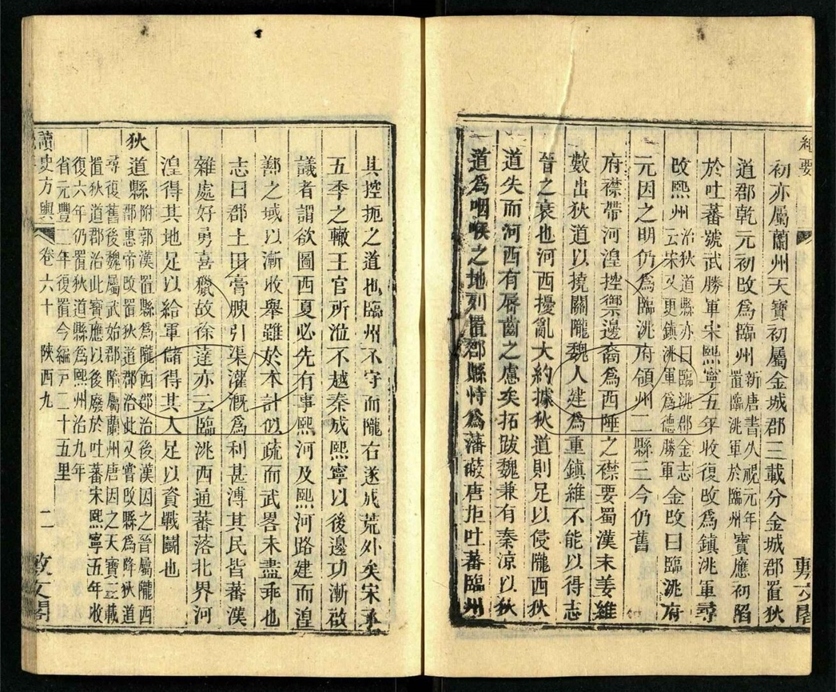 紀要
敷文閣
初亦屬蘭州天寶初屬金城郡三載分金城郡置狄
道郡乾元初改為臨州新唐書久視元年置臨洮軍於臨州寶應初陷
於吐蕃號武勝軍宋熙寧五年收復改為鎮洮軍尋
改熙州治狄道縣亦曰臨洮郡金志云宋又更鎮洮軍為德勝軍金改曰臨洮府
元因之明仍為臨洮府領州二縣三今仍舊
府襟帶河湟控禦邊裔為西陲之襟要蜀漢末姜維
數出狄道以撓關隴魏人建為重鎮維不能以得志
晉之衰也河西擾亂大約據狄道則足以侵隴西狄
道失而河西有脣齒之慮矣拓跋魏兼有秦涼以狄
道為咽喉之地列置郡縣恃為藩蔽唐拒吐蕃臨州
其控扼之道也臨州不守而隴右遂成荒外矣宋承
五季之轍王官所涖不越秦成熙寧以後邊功漸啟
議者謂欲圖西夏必先有事熙河及熙河路建而湟
鄯之域以漸收舉雖於本計似疏而武畧未盡乖也
志曰郡土田膏腴引渠灌溉為利甚溥其民皆蕃漢
雜處好勇喜獵故徐達亦云臨洮西通蕃落北界河
湟得其地足以給軍儲得其人足以資戰鬭也
狄道縣附郭漢置縣為隴西郡治後漢因之晉屬隴西
郡惠帝改置狄道郡治此又嘗改縣為降狄道
尋復舊後魏屬武始郡隋屬蘭州唐因之天寶三載
置狄道郡治此寶應以後廢於吐蕃宋熙寧五年收
復六年仍置狄道縣為熙州治九年
省元豐二年復置今編戶二十五里
讀史方輿 卷六十 陝西九 二 敷文閣